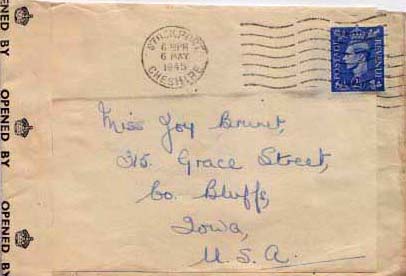 OPENED BY
OPENED BY
OPENED BY
STOCKPORT
6 30 PM
6 MAY
1945
CHESHIRE
POSTAGE
REVENUE
Miss Joy
315 Grace Street,
Co. Bluffs,
Iowa,
U.S.A.